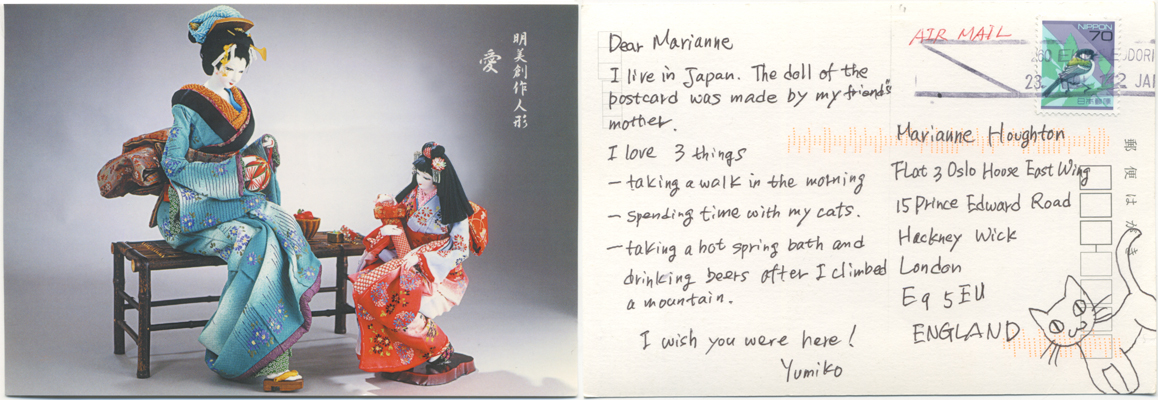 明美創作人形
愛
AIR MAIL
NIPPON
70
日本郵便
Dear Marianne
I live in Japan. The doll of the
postcard was made by my friend's
mother.
I love 3 things
- taking a walk in the morning
- spending time with my cats.
- taking a hot spring bath and
drinking beers after I climbed
a mountain.
I wish you were here!
Yumiko
Marianne Houghton
Flat 3 Oslo Hoose East Wing
15 Prince Edward Road
Hackney Wick
London
E9 5EU
ENGLAND
郵便はがき